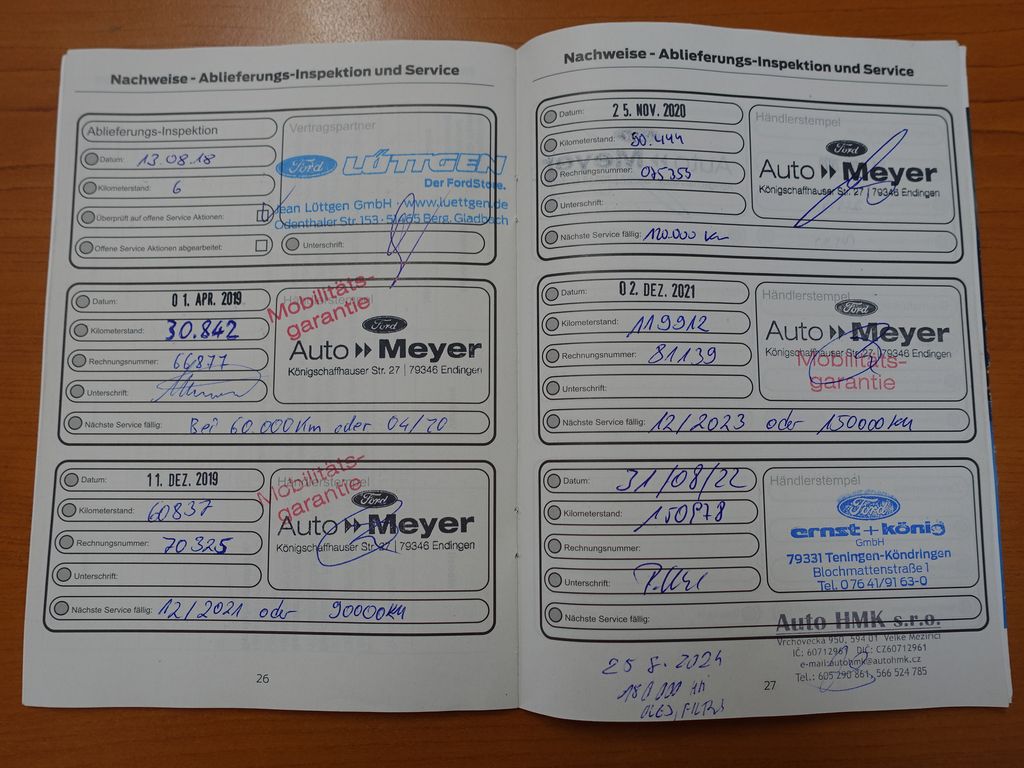 Nachweise - Ablieferungs-Inspektion und Service
Ablieferungs-Inspektion
Datum: 13.08.18
Kilometerstand: 6
Überprüft auf offene Service Aktionen:
Offene Service Aktionen abgearbeitet:
Vertragspartner
Ford LÜTTGEN
Der FordStore.
Jean Lüttgen GmbH · www.luettgen.de
Odenthaler Str. 153 · 51465 Berg. Gladbach
Unterschrift:
Datum: 01. APR. 2019
Kilometerstand: 30.842
Rechnungsnummer: 66877
Unterschrift:
Nächste Service fällig: Bei 60.000 Km oder 04/20
Mobilitäts-
garantie
Ford
Auto Meyer
Königschaffhauser Str. 27 | 79346 Endingen
Datum: 11. DEZ. 2019
Kilometerstand: 60837
Rechnungsnummer: 70325
Unterschrift:
Nächste Service fällig: 12/2021 oder 90000 km
Händlerstempel
Mobilitäts-
garantie
Ford
Auto Meyer
Königschaffhauser Str. 27 | 79346 Endingen
26
Nachweise - Ablieferungs-Inspektion und Service
Datum: 25. NOV. 2020
Kilometerstand: 90.444
Rechnungsnummer: 075353
Unterschrift:
Nächste Service fällig: 120.000 km
Händlerstempel
Ford
Auto Meyer
Königschaffhauser Str. 27 | 79346 Endingen
Datum: 02. DEZ. 2021
Kilometerstand: 119912
Rechnungsnummer: 81139
Unterschrift:
Nächste Service fällig: 12/2023 oder 150000 km
Händlerstempel
Ford
Auto Meyer
Königschaffhauser Str. 27 | 79346 Endingen
Mobilitäts-
garantie
Datum: 31/08/22
Kilometerstand: 150978
Rechnungsnummer:
Unterschrift:
Nächste Service fällig:
Händlerstempel
Ford
ernst+könig
GmbH
79331 Teningen-Köndringen
Blochmattenstraße 1
Tel. 0 76 41/91 63-0
Auto HMK s.r.o.
Vrchovecká 950, 594 01 Velké Meziříčí
IČ: 60712961 DIČ: CZ60712961
e-mail:autohmk@autohmk.cz
Tel.: 605 290 861, 566 524 785
25 8. 2024
180 000 km
OLEJ, FILTRY
27